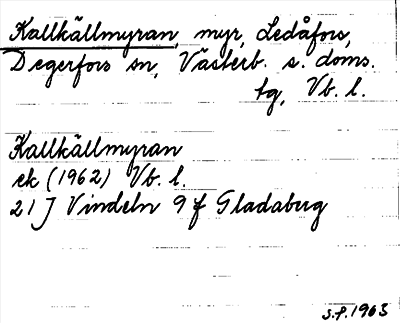 Kallkällmyran, myr, Ledåfors,
Degerfors sn, Västerb. s. doms.
tg, Vb. l.
Kallkällmyran
ek (1962) Vb. l.
21 J Vindeln 9 f Gladaberg
S.P. 1963